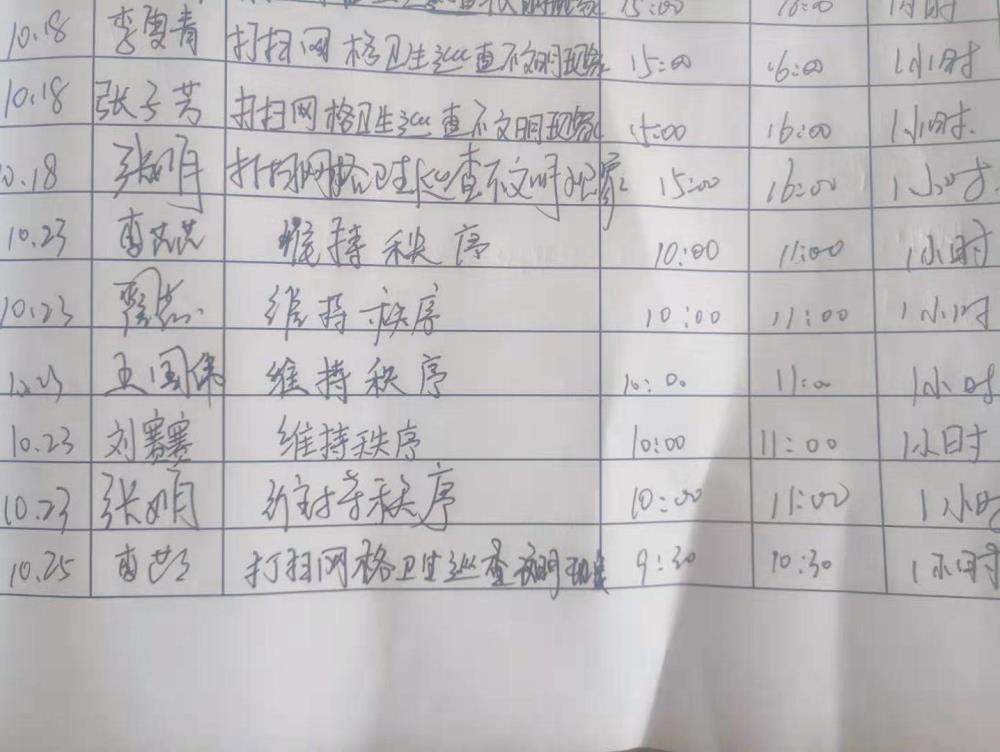 15:00 16:00 1小时
10.18 李夏青 打扫网格卫生巡查不文明现象 15:00 16:00 1小时
10.18 张子芳 打扫网格卫生巡查不文明现象 15:00 16:00 1小时.
10.18 张明 打扫网格卫生巡查不文明现象 15:00 16:00 1小时
10.23 曹芸芸 维持秩序 10:00 11:00 1小时
10.23 维持秩序 10:00 11:00 1小时
10.23 王国伟 维持秩序 10:00 11:00 1小时
10.23 刘赛赛 维持秩序 10:00 11:00 1小时
10.23 张明 维持秩序 10:00 11:00 1小时
10.25 打扫网格卫生巡查文明现象 9:30 10:30 1小时